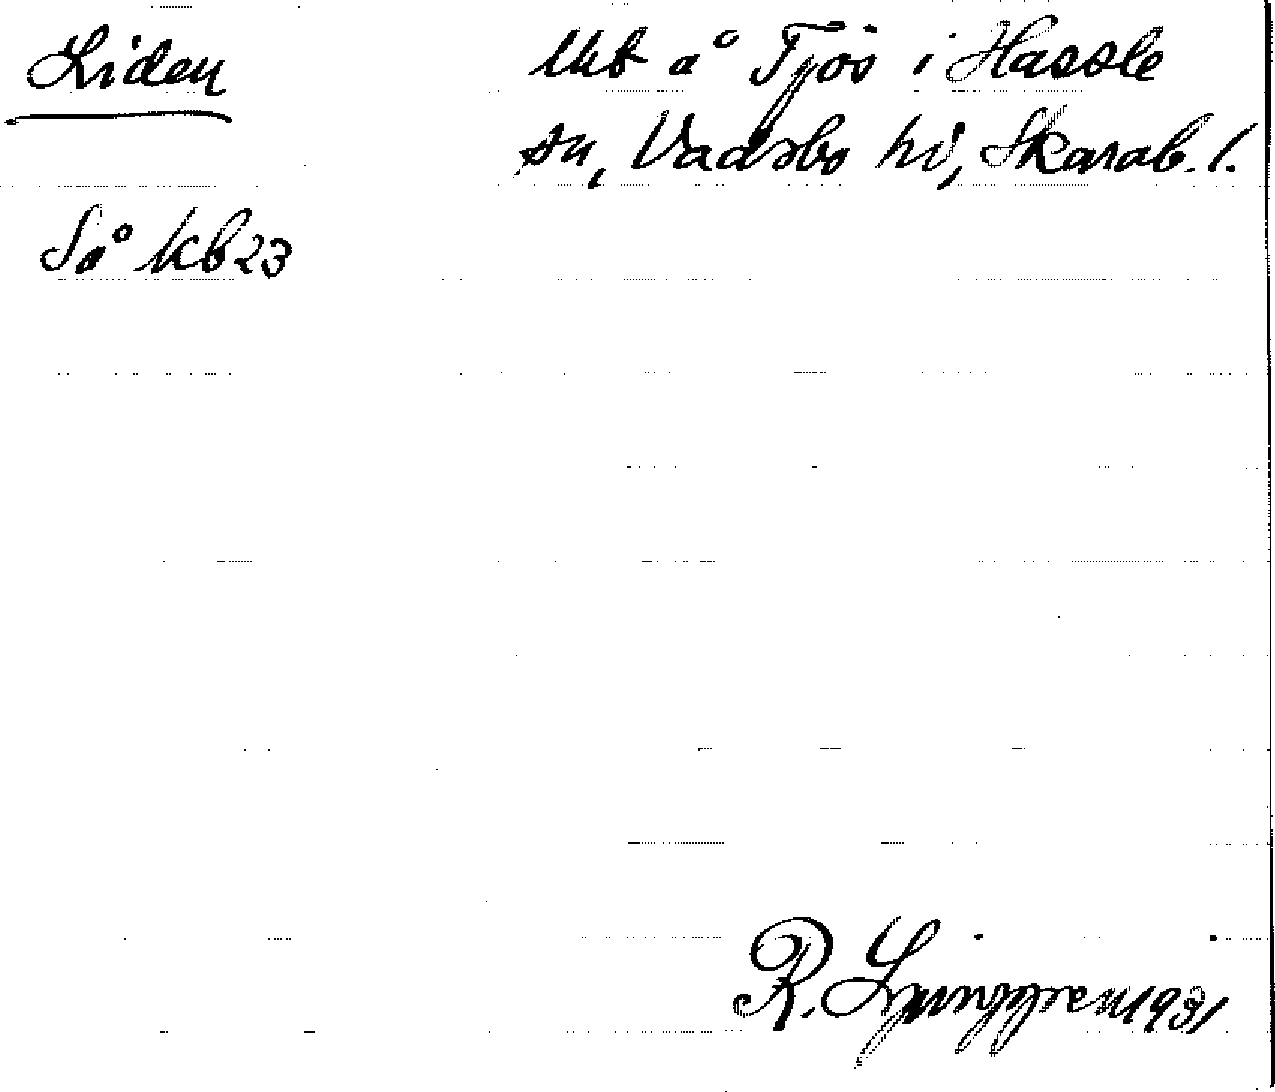 Liden
Utb å Tjos i Hassle
sn, Vadsbo hd, Skarab. l.
Så kb 23
R. Ljunggren 1931